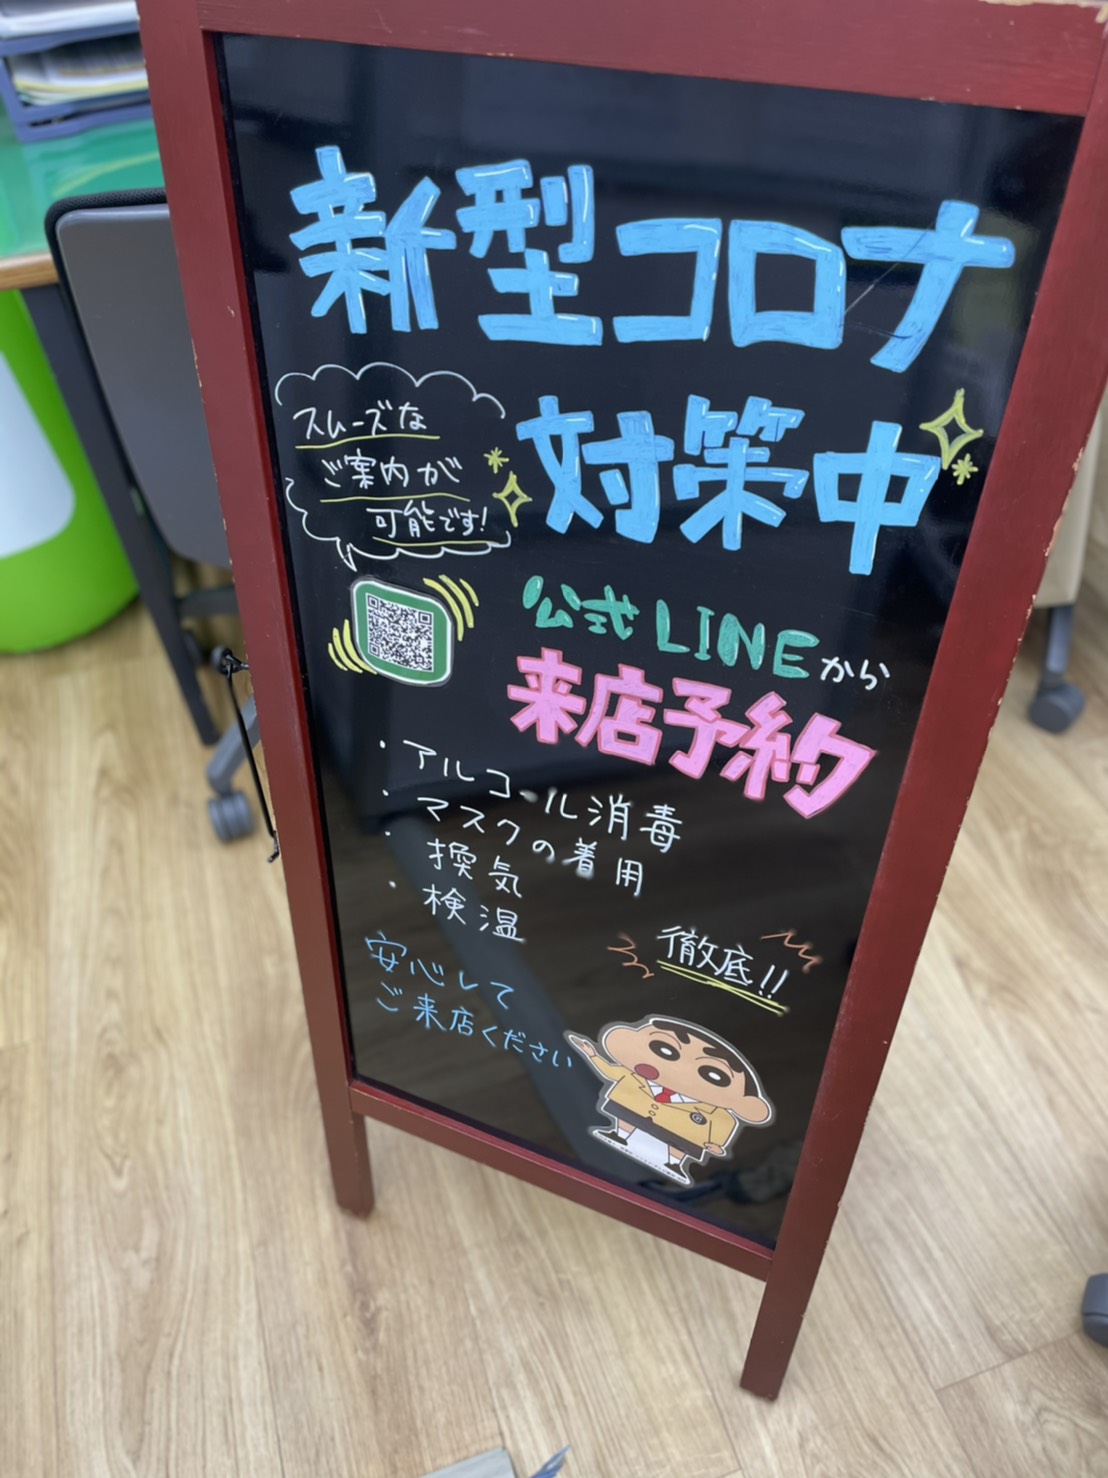 新型コロナ
対策中
スムーズな
ご案内が
可能です!
公式LINEから
来店予約
・アルコール消毒
・マスクの着用
・換気
・検温
徹底!!
安心して
ご来店ください